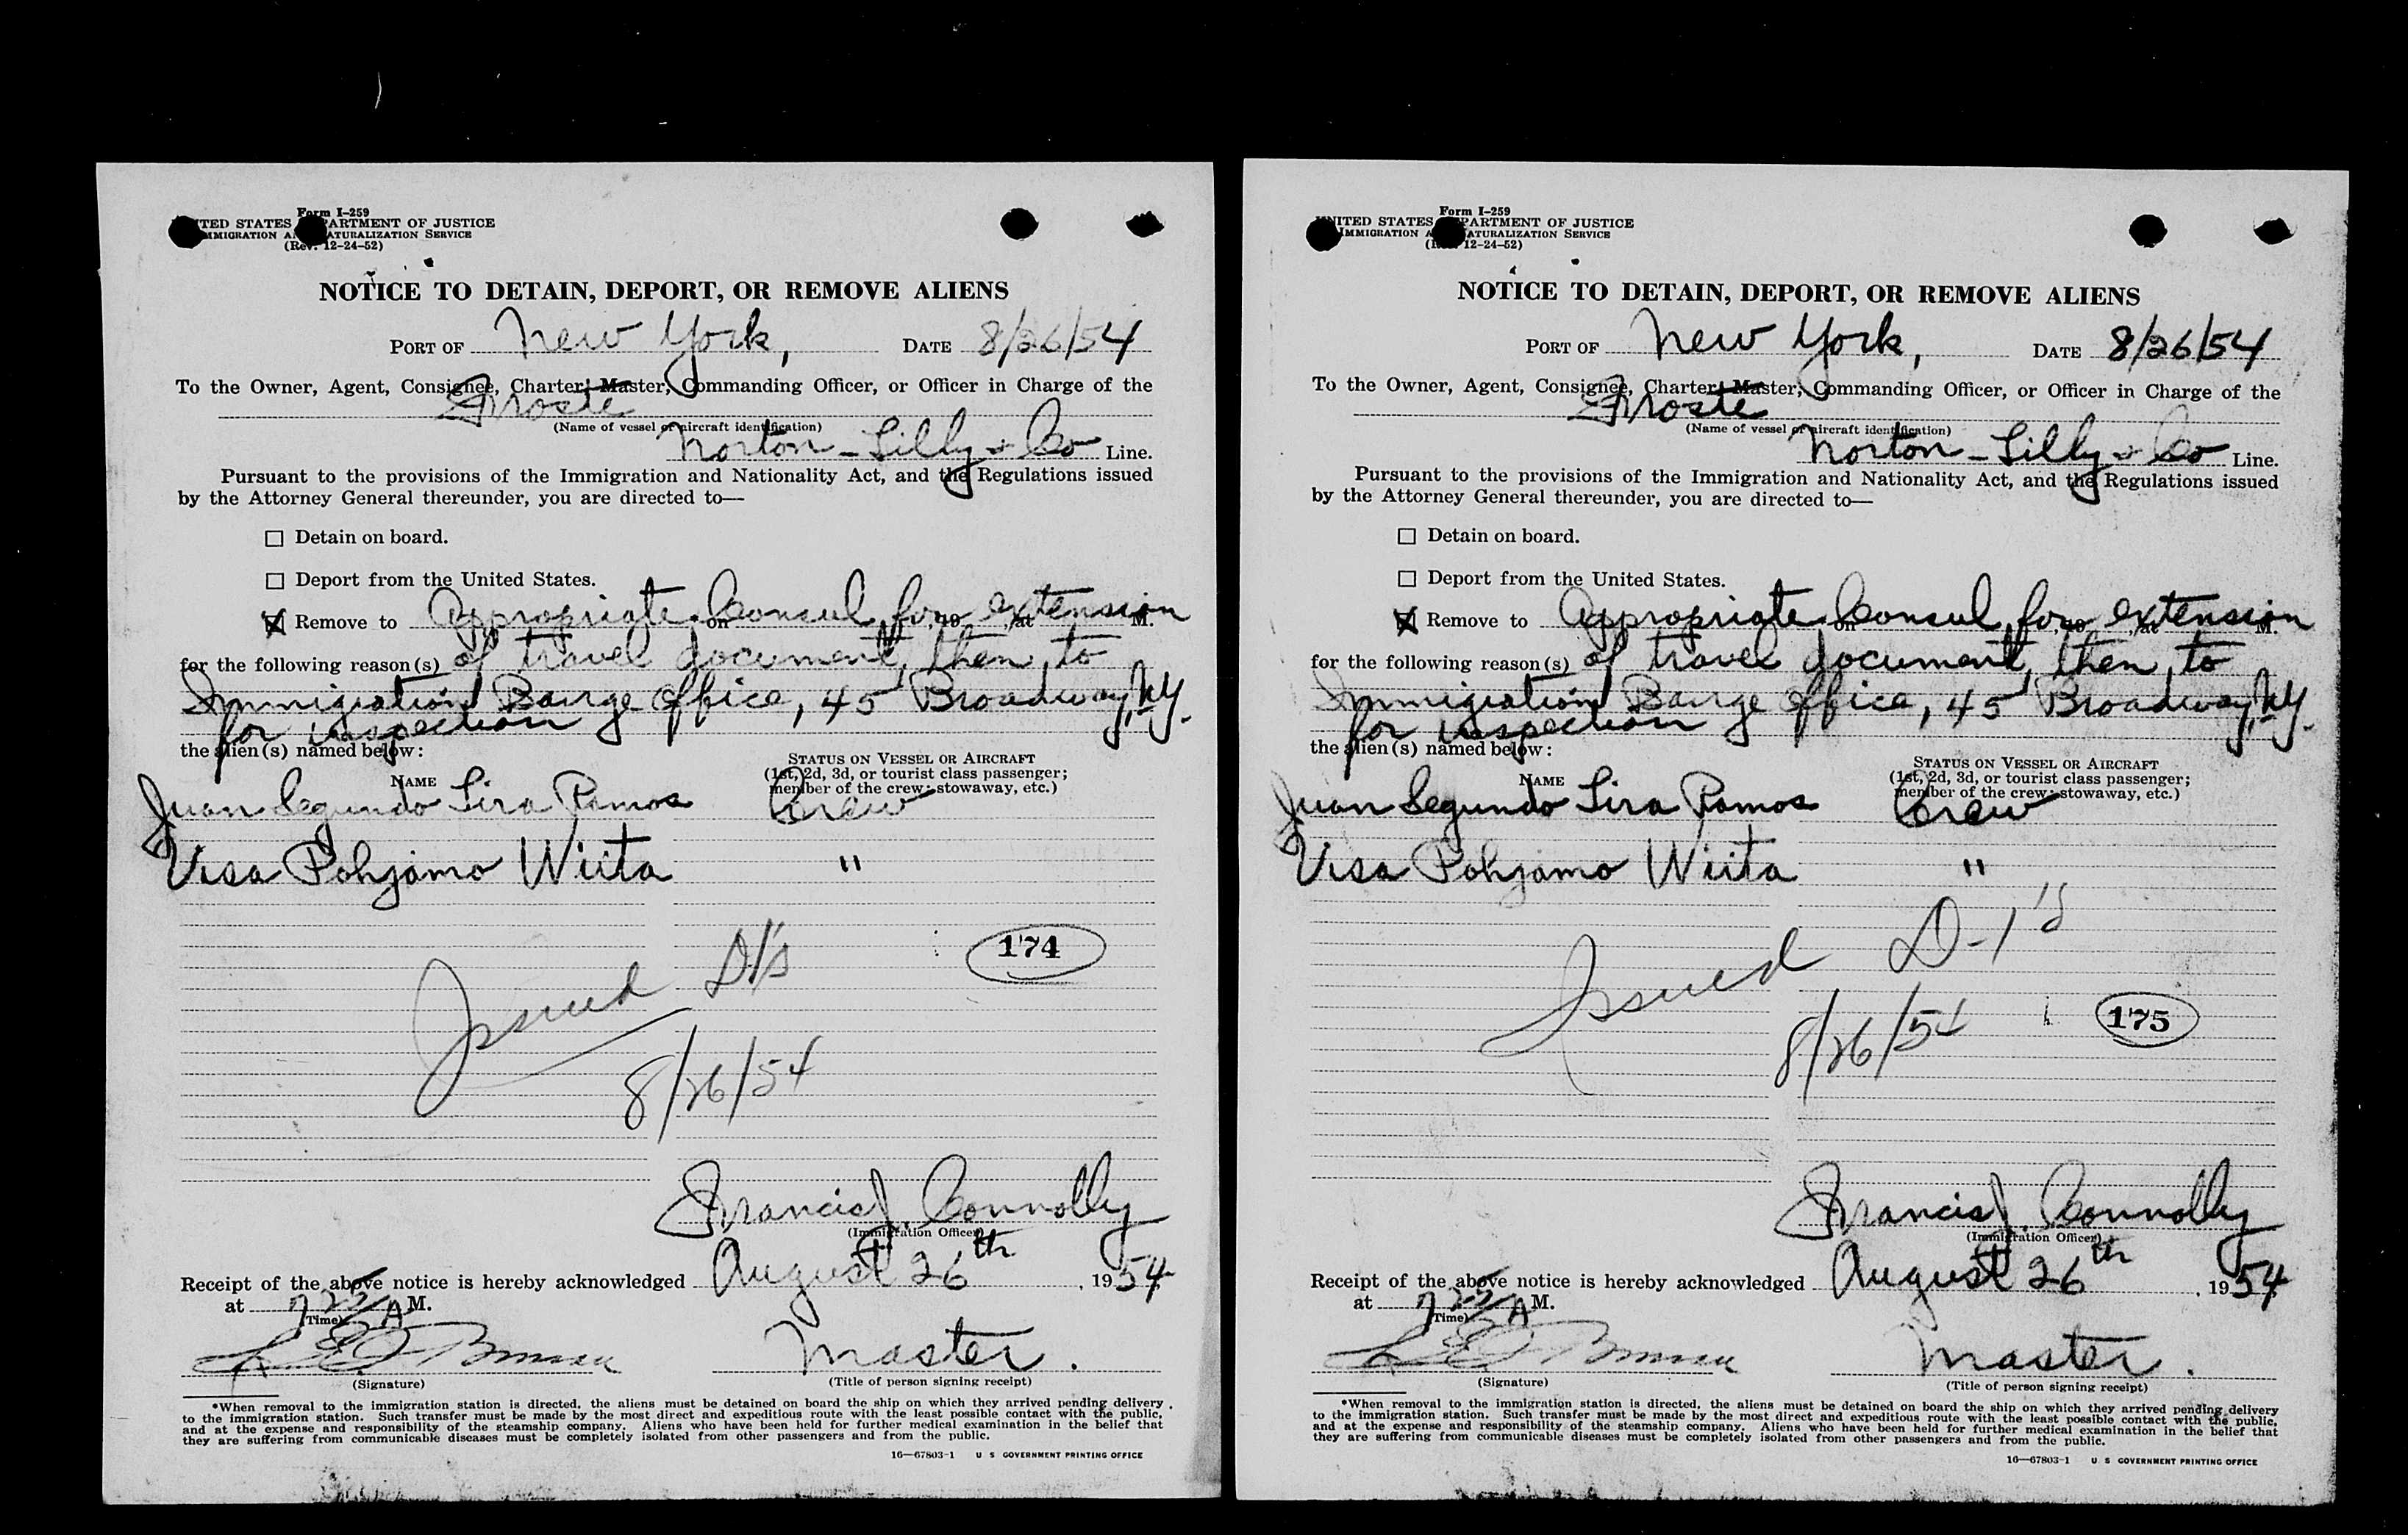 Form I-259
UNITED STATES DEPARTMENT OF JUSTICE
IMMIGRATION AND NATURALIZATION SERVICE
(Rev. 12-24-52)
NOTICE TO DETAIN, DEPORT, OR REMOVE ALIENS
PORT OF New York, DATE 8/26/54
To the Owner, Agent, Consignee, Charter, Master, Commanding Officer, or Officer in Charge of the
Froste
(Name of vessel or aircraft identification)
Norton-Lilly & Co Line.
Pursuant to the provisions of the Immigration and Nationality Act, and the Regulations issued
by the Attorney General thereunder, you are directed to—
☐ Detain on board.
☐ Deport from the United States.
☒ Remove to Appropriate Consul for extension
for the following reason(s) of travel document, then to
Immigration Barge Office, 45 Broadway, NY.
for inspection
the alien(s) named below:
NAME
STATUS ON VESSEL OR AIRCRAFT
(1st, 2d, 3d, or tourist class passenger;
member of the crew; stowaway, etc.)
Juan Segundo Lira Ramos Crew
Visa Pohjamo Wiita "
Issued D1's
174
8/26/54
Francis J. Connolly
(Immigration Officer)
Receipt of the above notice is hereby acknowledged August 26th, 1954
at 7 25 A M.
(Time)
Master.
(Signature) (Title of person signing receipt)
*When removal to the immigration station is directed, the aliens must be detained on board the ship on which they arrived pending delivery
to the immigration station. Such transfer must be made by the most direct and expeditious route with the least possible contact with the public,
and at the expense and responsibility of the steamship company. Aliens who have been held for further medical examination in the belief that
they are suffering from communicable diseases must be completely isolated from other passengers and from the public.
16—67803-1 U S GOVERNMENT PRINTING OFFICE
Form I-259
UNITED STATES DEPARTMENT OF JUSTICE
IMMIGRATION AND NATURALIZATION SERVICE
(Rev. 12-24-52)
NOTICE TO DETAIN, DEPORT, OR REMOVE ALIENS
PORT OF New York, DATE 8/26/54
To the Owner, Agent, Consignee, Charter, Master, Commanding Officer, or Officer in Charge of the
Froste
(Name of vessel or aircraft identification)
Norton-Lilly & Co Line.
Pursuant to the provisions of the Immigration and Nationality Act, and the Regulations issued
by the Attorney General thereunder, you are directed to—
☐ Detain on board.
☐ Deport from the United States.
☒ Remove to Appropriate Consul for extension
for the following reason(s) of travel document, then to
Immigration Barge Office, 45 Broadway, NY.
for inspection
the alien(s) named below:
NAME
STATUS ON VESSEL OR AIRCRAFT
(1st, 2d, 3d, or tourist class passenger;
member of the crew; stowaway, etc.)
Juan Segundo Lira Ramos Crew
Visa Pohjamo Wiita "
Issued D-1's
8/26/54
175
Francis J. Connolly
(Immigration Officer)
Receipt of the above notice is hereby acknowledged August 26th, 1954
at 7 25 A M.
(Time)
Master.
(Signature) (Title of person signing receipt)
*When removal to the immigration station is directed, the aliens must be detained on board the ship on which they arrived pending delivery
to the immigration station. Such transfer must be made by the most direct and expeditious route with the least possible contact with the public,
and at the expense and responsibility of the steamship company. Aliens who have been held for further medical examination in the belief that
they are suffering from communicable diseases must be completely isolated from other passengers and from the public.
16—67803-1 U S GOVERNMENT PRINTING OFFICE